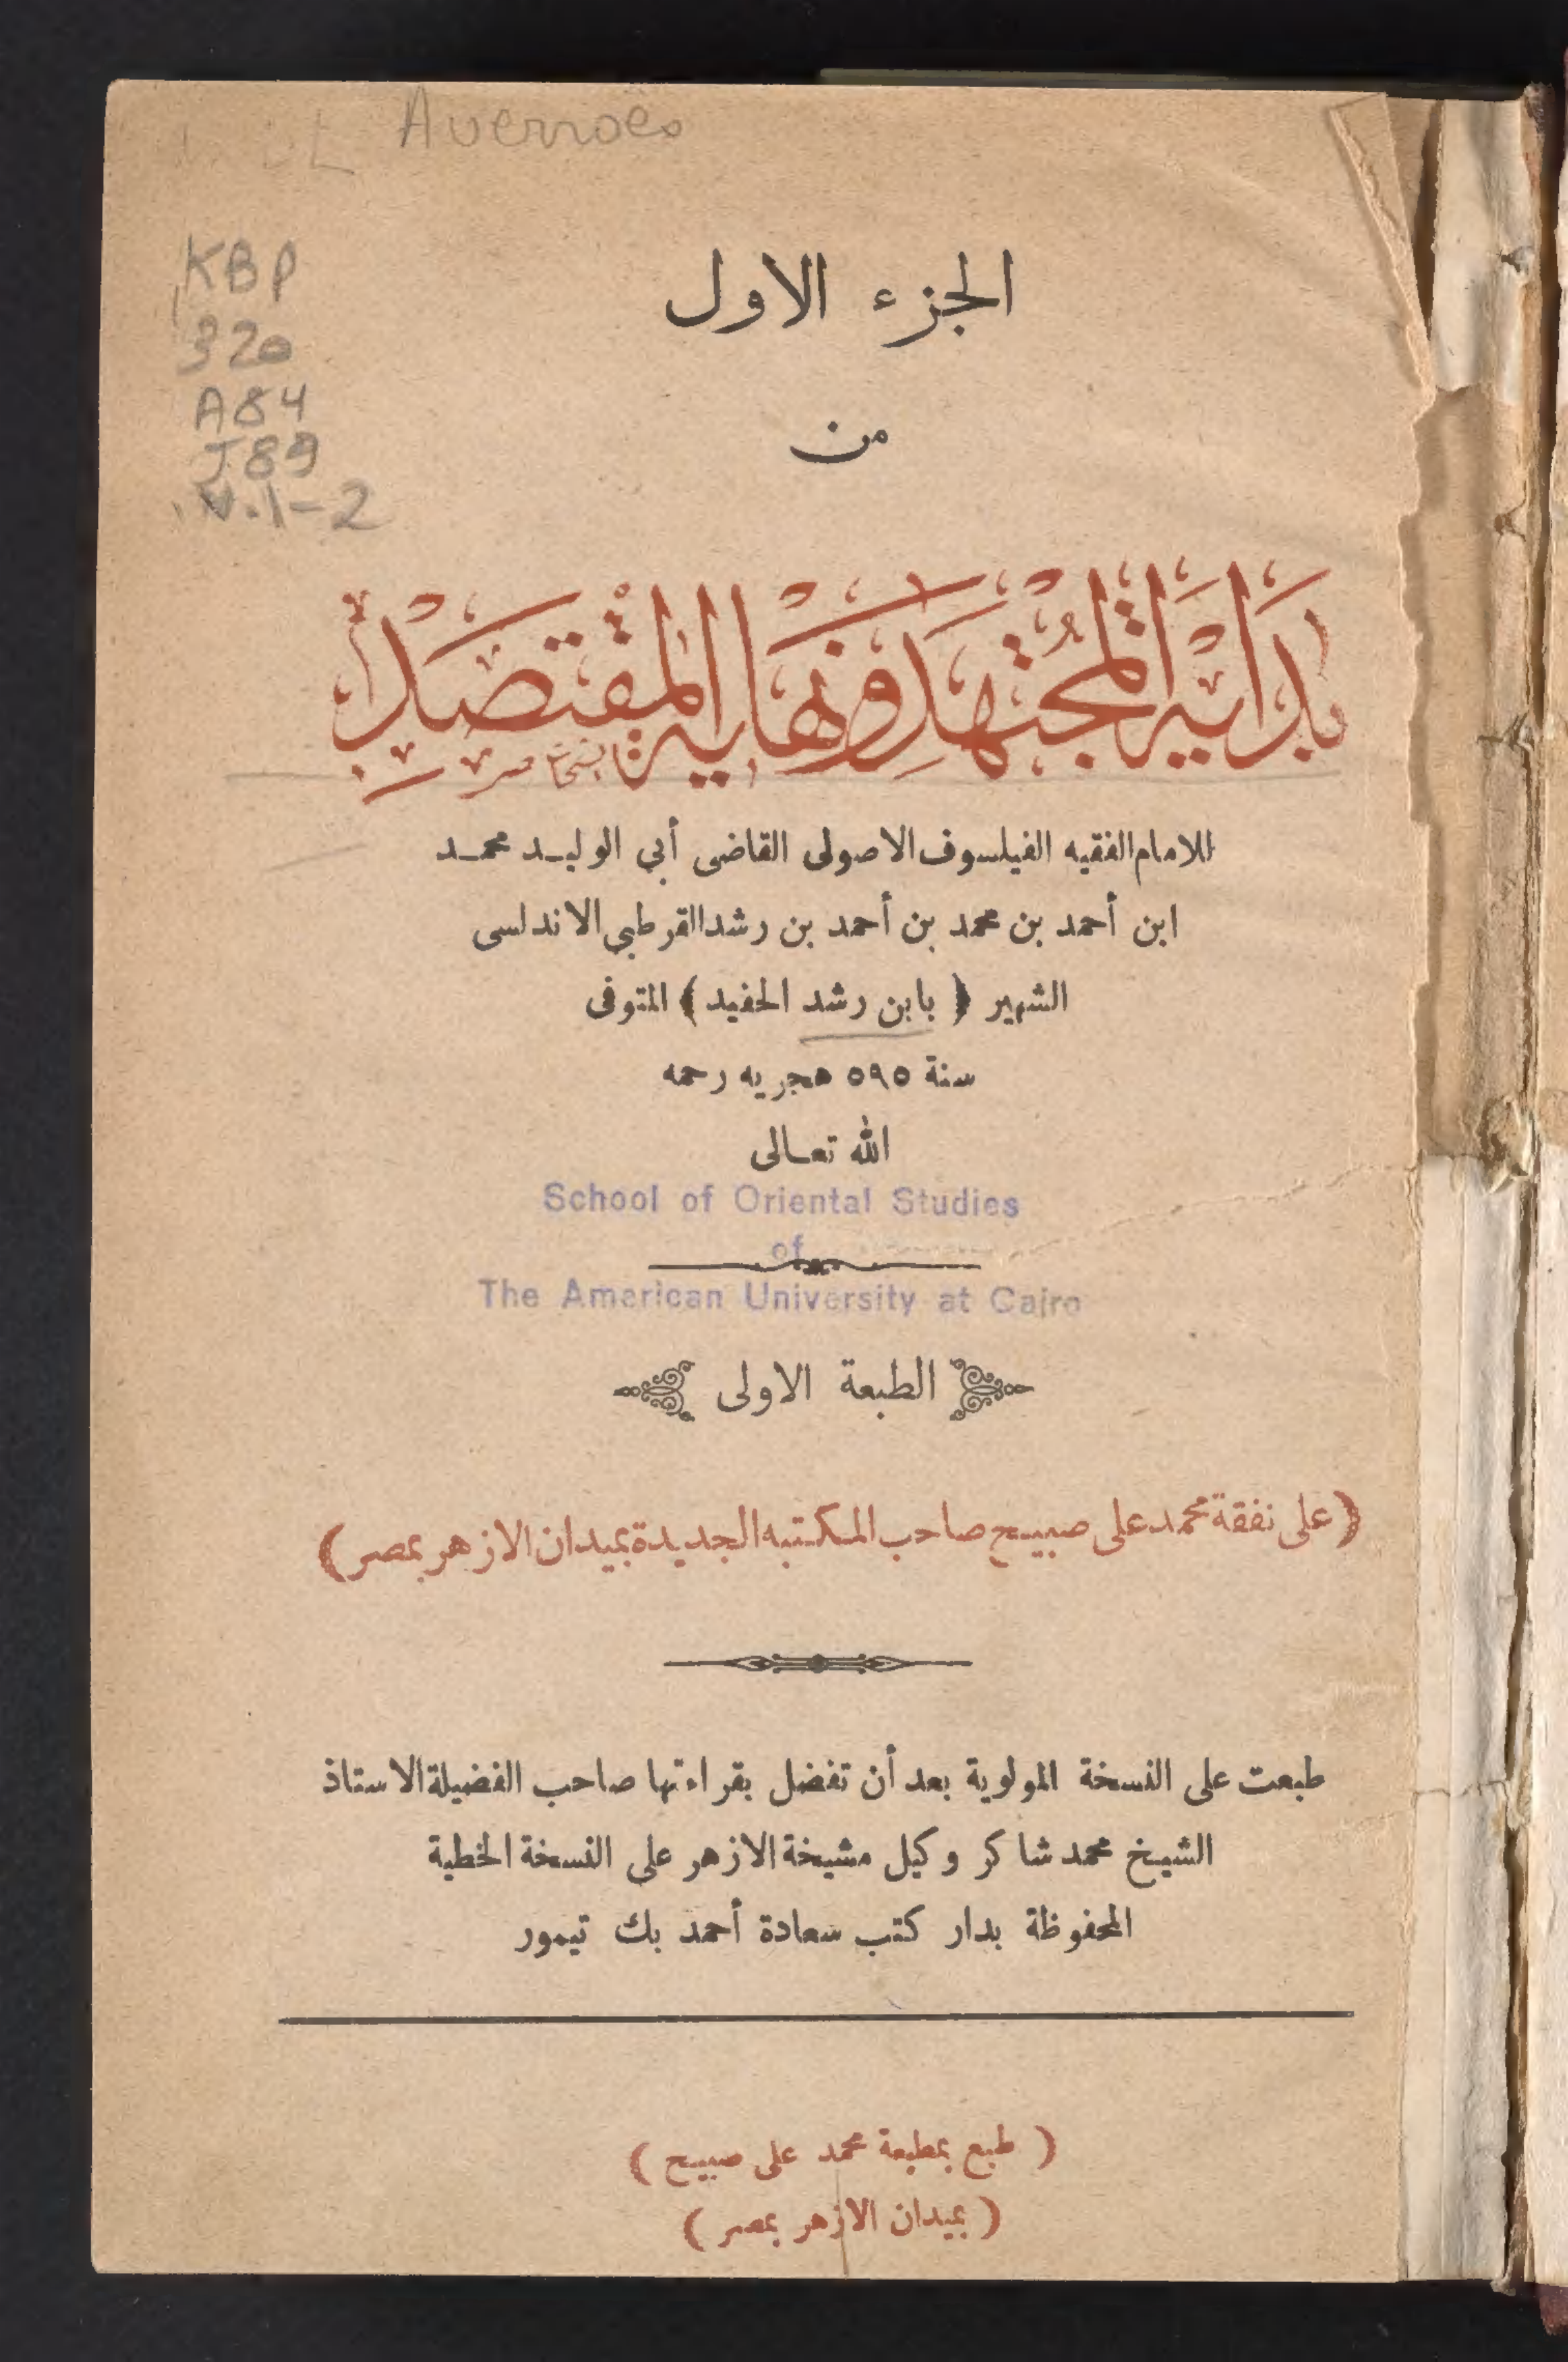 Averroes
KBP
320
A84
J89
v.1-2
الجزء الاول
من
بداية المجتهد ونهاية المقتصد
للامام الفقيه الفيلسوف الاصولى القاضى أبي الوليـد محمـد
ابن أحمد بن محمد بن أحمد بن رشد القرطبي الاندلسى
الشهير ﴿ بابن رشد الحفيد ﴾ المتوفى
سنة ٥٩٥ هجريه رحمه
الله تعـالى
School of Oriental Studies
of
The American University at Cairo
الطبعة الاولى
﴿ على نفقة محمد على صبيح صاحب المكتبه الجديدة بميدان الازهر بمصر ﴾
طبعت على النسخة المولوية بعد أن تفضل بقراءتها صاحب الفضيلة الاستاذ
الشيخ محمد شاكر وكيل مشيخة الازهر على النسخة الخطية
المحفوظة بدار كتب سعادة أحمد بك تيمور
( طبع بمطبعة محمد على صبيح )
( بميدان الازهر بمصر )